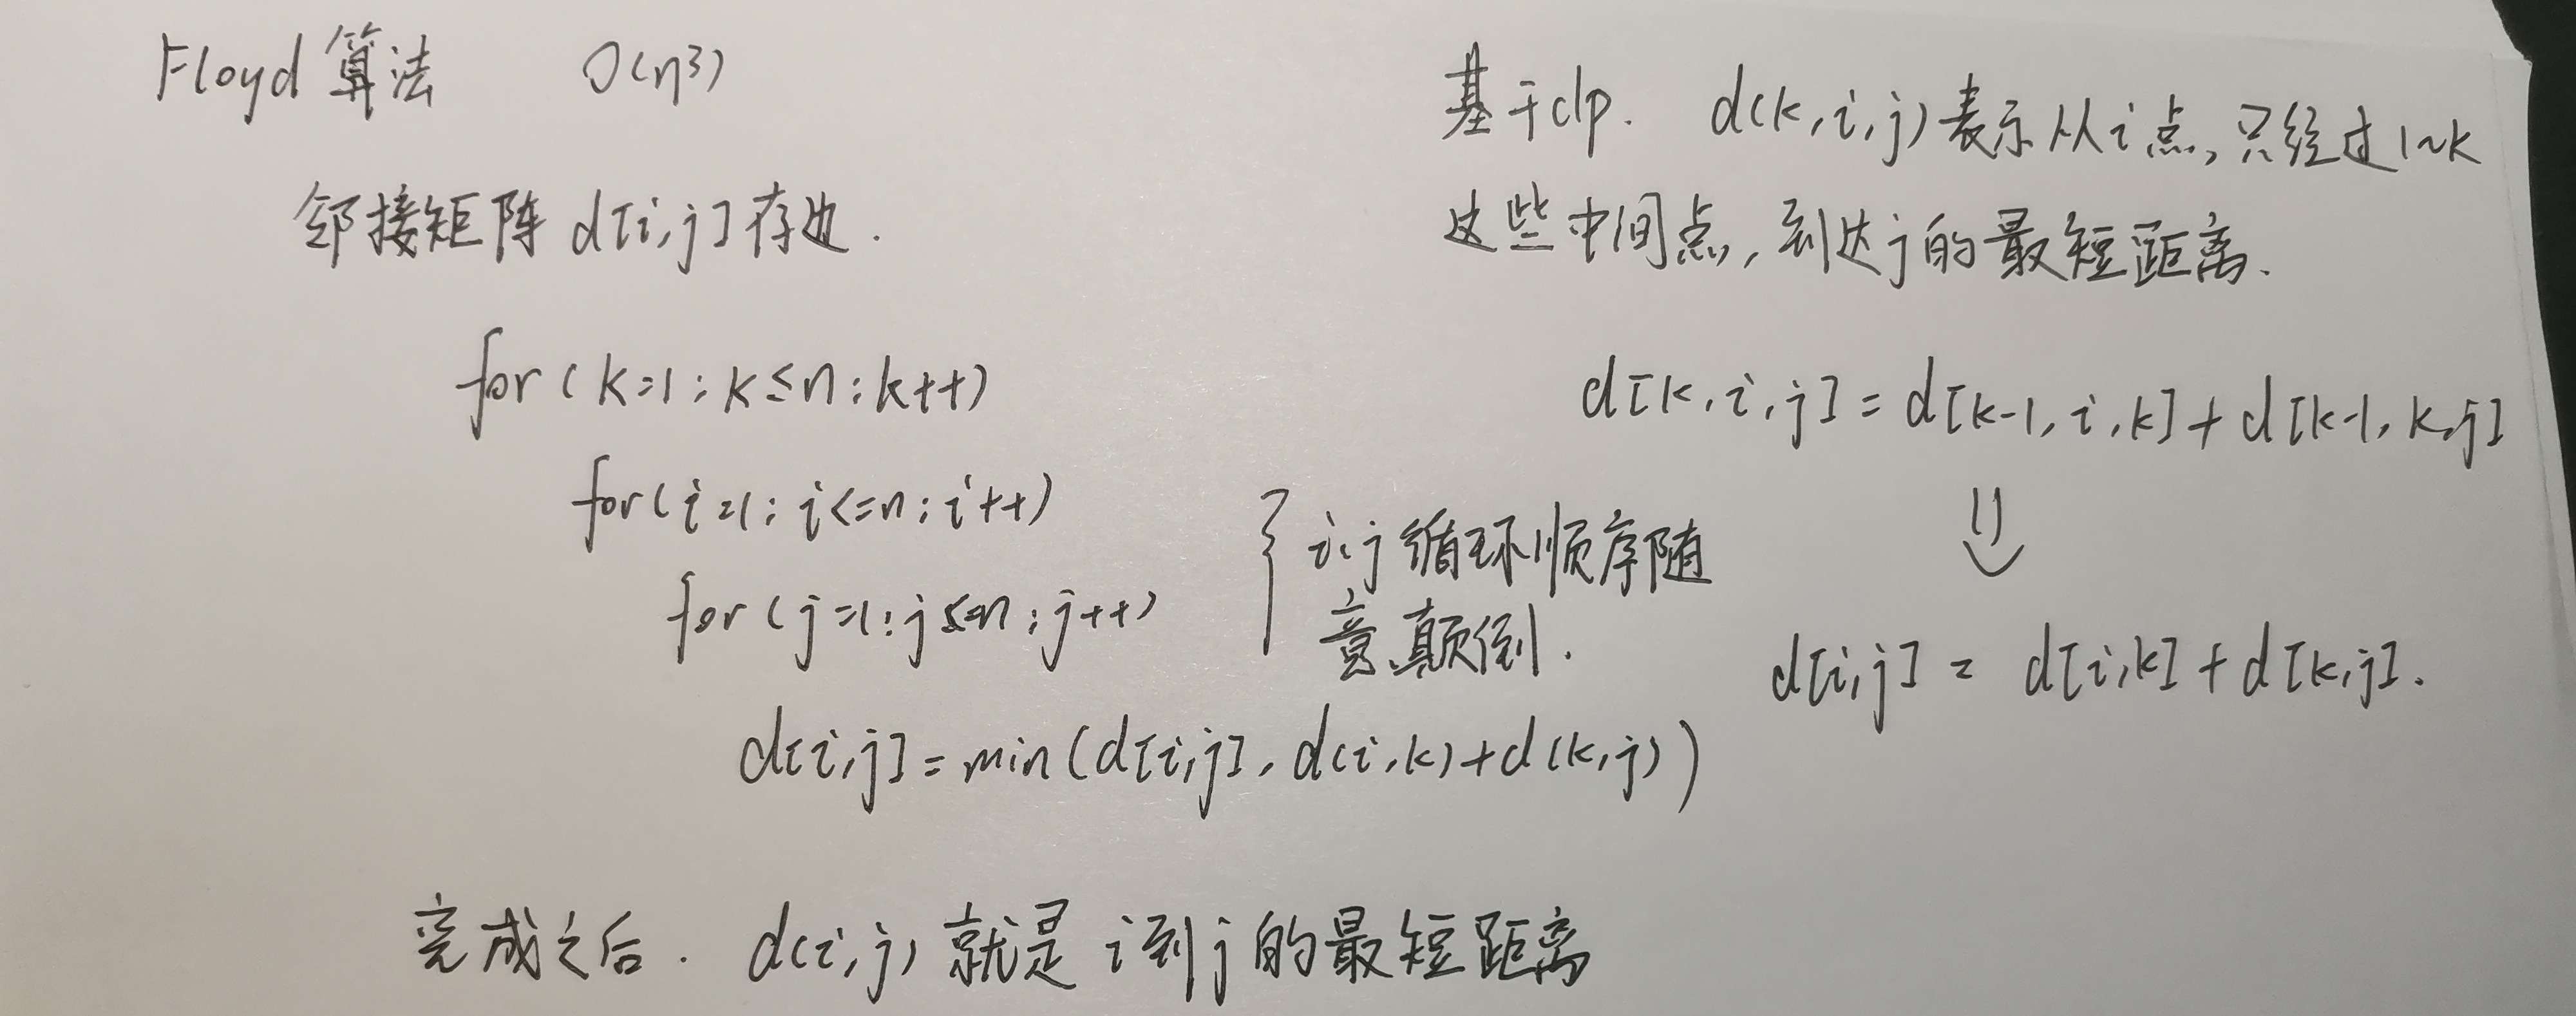 Floyd算法 O(n³)
邻接矩阵 d[i,j]存边.
for(k=1;k≤n;k++)
for(i=1;i<=n;i++)
for(j=1;j<=n;j++)
i,j循环顺序随
意颠倒.
d[i,j]=min(d[i,j],d(i,k)+d(k,j))
完成之后. d(i,j)就是i到j的最短距离
基于dp. d(k,i,j)表示从i点,只经过1~k
这些中间点,到达j的最短距离.
d[k,i,j]=d[k-1,i,k]+d[k-1,k,j]
⇓
d[i,j]=d[i,k]+d[k,j].